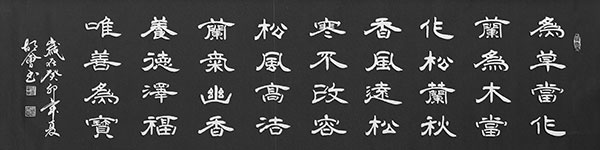 為草當作
蘭為木當
作松蘭秋
香風遠松
寒不改容
松風高洁
蘭氣幽香
養德澤福
唯善為寶
歲在癸卯年夏